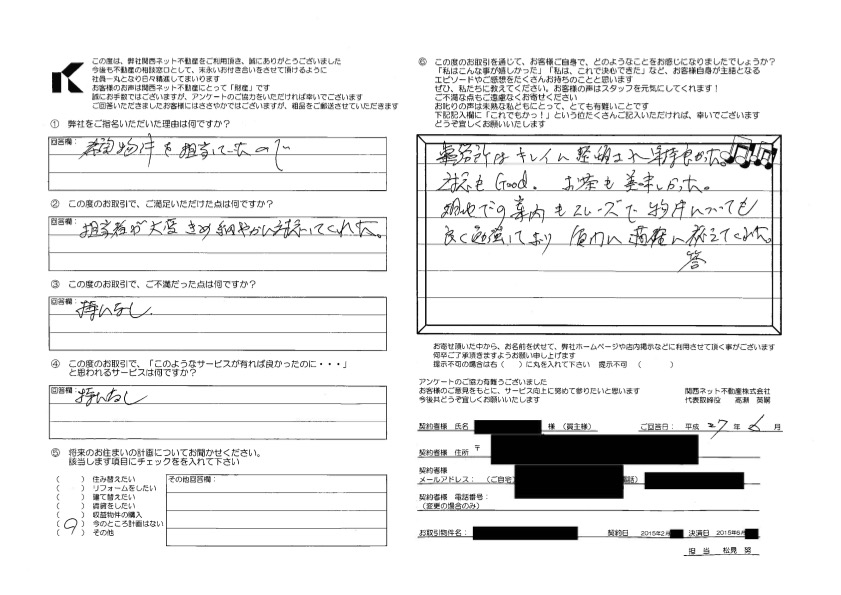 この度は、弊社関西ネット不動産をご利用頂き、誠にありがとうございました
今後も不動産の相談窓口として、末永いお付き合いをさせて頂けるように
社員一丸となり日々精進してまいります
お客様のお声は関西ネット不動産にとって「財産」です
誠にお手数ではございますが、アンケートのご協力をいただければ幸いでございます
ご回答いただきましたお客様にはささやかではございますが、粗品をご郵送させていただきます
① 弊社をご指名いただいた理由は何ですか?
回答欄:
物件を担当していたので
② この度のお取引で、ご満足いただけた点は何ですか?
回答欄:
担当者が大変きめ細やかに対応してくれた。
③ この度のお取引で、ご不満だった点は何ですか?
回答欄:
特になし.
④ この度のお取引で、「このようなサービスが有れば良かったのに・・・」
と思われるサービスは何ですか?
回答欄:
特になし
⑤ 将来のお住まいの計画についてお聞かせください。
該当します項目にチェックをを入れて下さい
( ) 住み替えたい
( ) リフォームをしたい
( ) 建て替えたい
( ) 賃貸をしたい
( ) 収益物件の購入
( ) 今のところ計画はない
( ) その他
その他回答欄:
⑥ この度のお取引を通じて、お客様ご自身で、どのようなことをお感じになりましたでしょうか?
「私はこんな事が嬉しかった」「私は、これで決心できた」など、お客様自身が主語となる
エピソードやご感想をたくさんお持ちのことと思います
ぜひ、私たちに教えてください。お客様の声はスタッフを元気にしてくれます!
ご不満な点もご遠慮なくお寄せください
お叱りの声は未熟な私どもにとって、とても有難いことです
下記記入欄に「これでもかっ!」という位たくさんご記入いただければ、幸いでございます
どうぞ宜しくお願いいたします
事務所はキレイに整頓され気持良かった。
対応もGood. お茶も美味しかった。
現地での案内もスムーズで物件についても
良く勉強しており 質問に的確に応えてくれた。
答
お寄せ頂いた中から、お名前を伏せて、弊社ホームページや店内掲示などに利用させて頂く事がございます
何卒ご了承頂きますようお願い申し上げます
提示不可の場合は右( )に丸を入れて下さい 提示不可 ( )
アンケートのご協力有難うございました
お客様のご意見をもとに、サービス向上に努めて参りたいと思います
今後共どうぞ宜しくお願いいたします
関西ネット不動産株式会社
代表取締役 高瀬 英篤
契約者様 氏名 様 (買主様) ご回答日: 平成 27 年 6 月
契約者様 住所 〒
契約者様
メールアドレス: (ご自宅)
契約者様 電話番号:
(変更の場合のみ)
お取引物件名: 契約日 2015年2月 決済日 2015年6月
担 当 松見 努